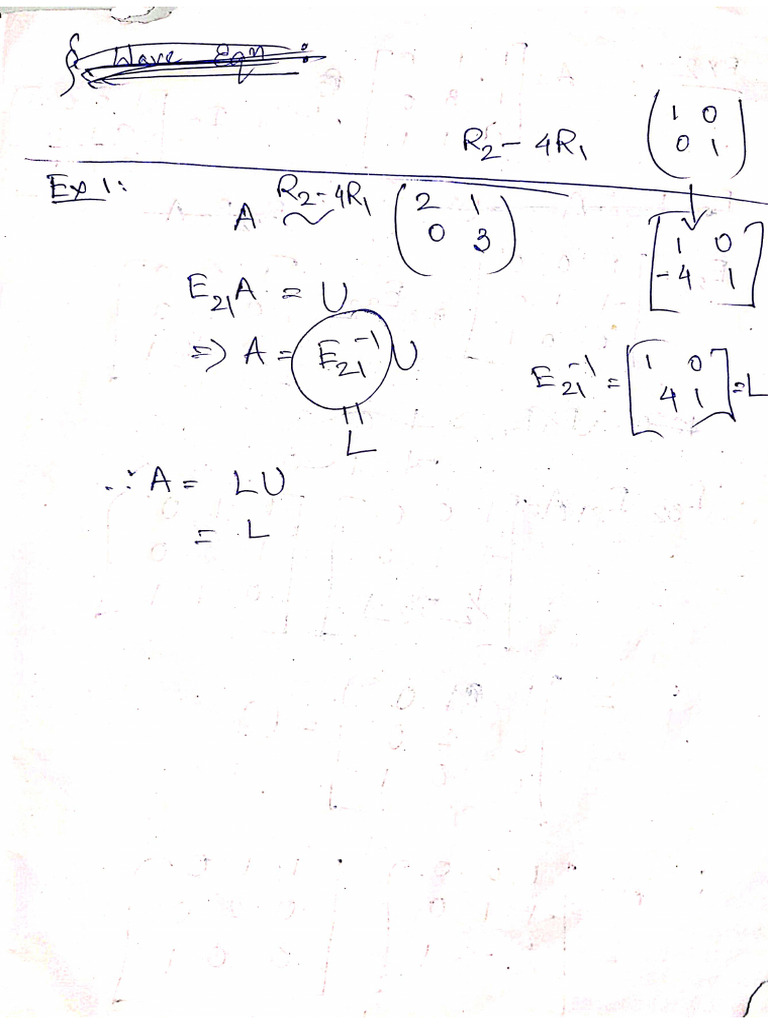 Wave Eqn :
R2 - 4R1 ( 1 0
0 1 )
Ex 1:
A R2-4R1 ~ ( 2 1
0 3 )
[ 1 0
-4 1 ]
E21A = U
=> A = E21^-1 U
E21^-1 = [ 1 0
4 1 ] = L
||
L
∴ A = LU
= L